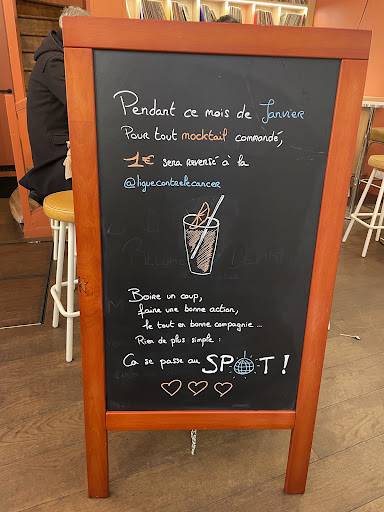 Pendant ce mois de Janvier
Pour tout mocktail commandé,
1€ sera reversé à la
@liguecontrelecancer
Boire un coup,
faire une bonne action,
le tout en bonne compagnie...
Rien de plus simple :
Ca se passe au SPOT !